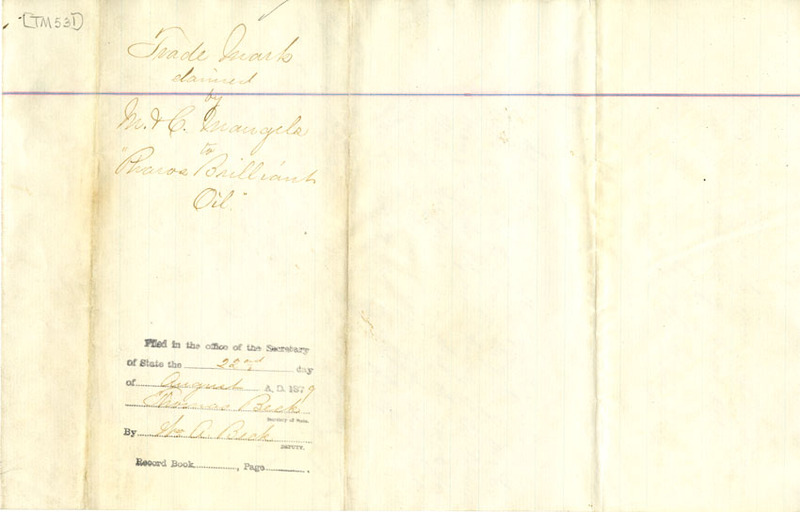 [TM531]
Trade Mark
claimed
by
M. & C. Mangels
to
"Pharos Brilliant
Oil"
Filed in the office of the Secretary
of State the 22nd day
of August A. D. 1879
Thomas Beck
Secretary of State.
By Wm A Beck
DEPUTY.
Record Book , Page .